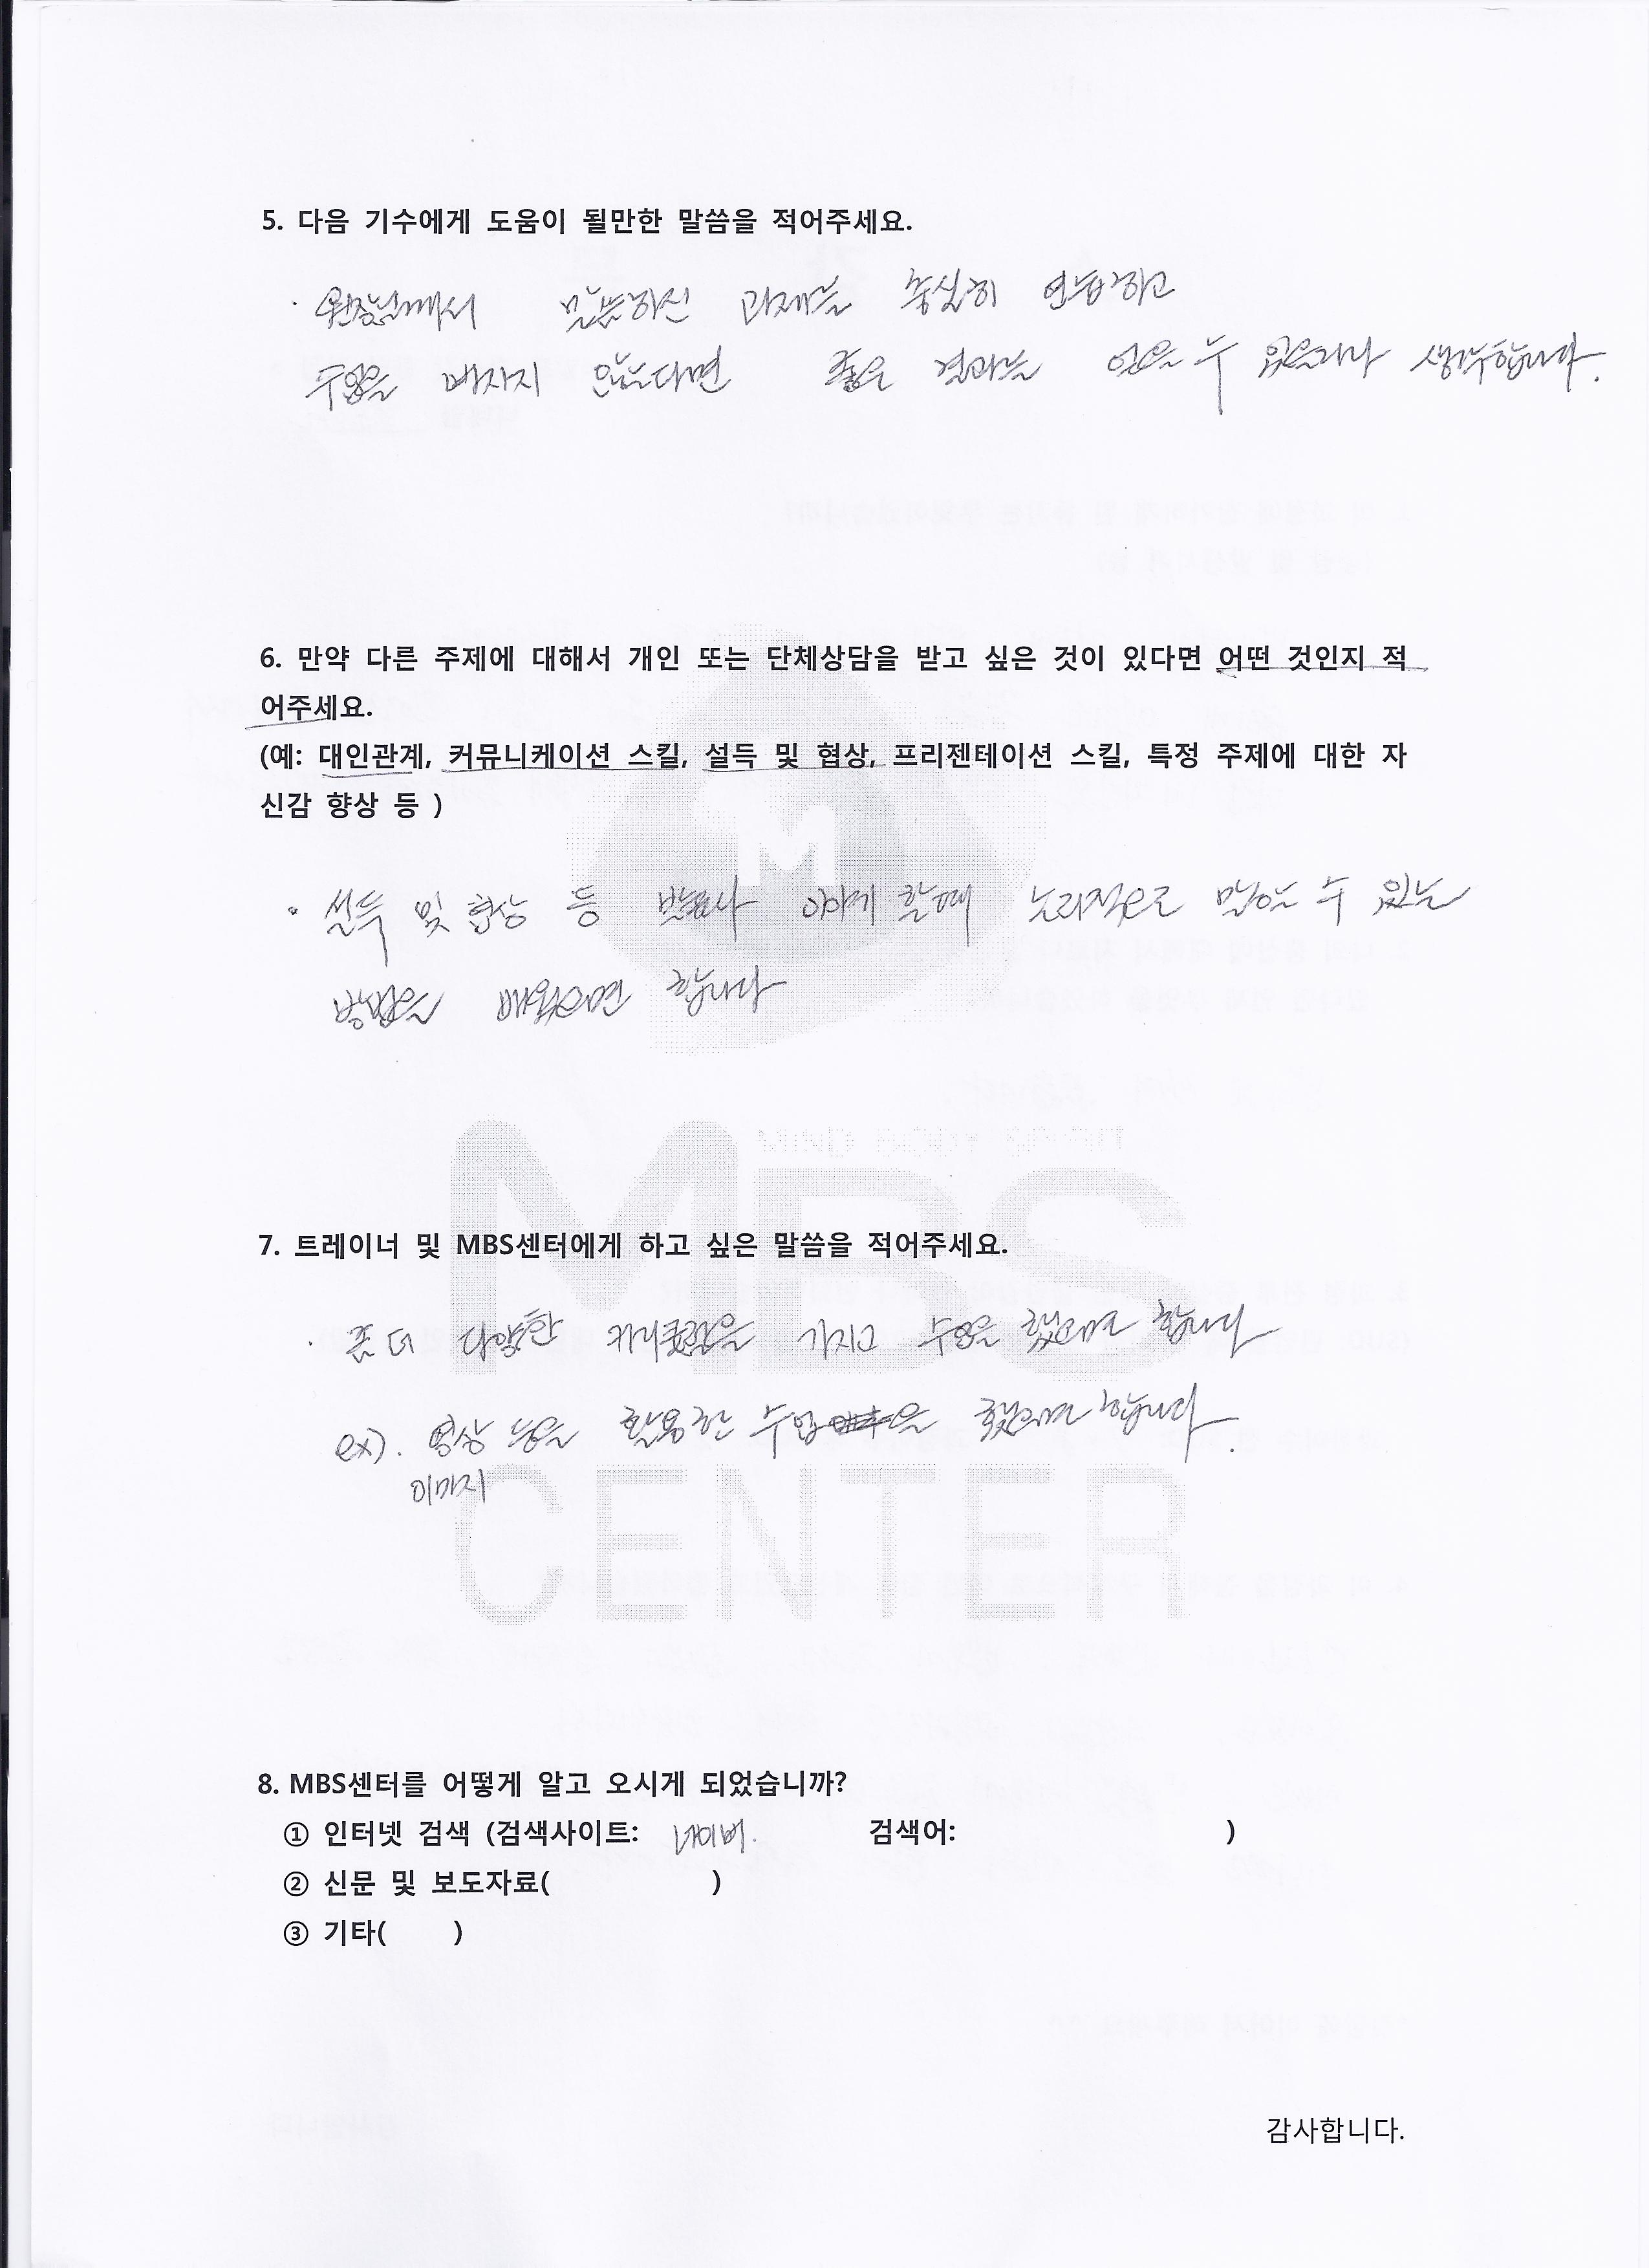 5. 다음 기수에게 도움이 될만한 말씀을 적어주세요.
· 원장님께서 말씀하신 과제를 충실히 연습하고
수업을 빠지지 않는다면 좋은 결과를 얻을 수 있을거라 생각합니다.
6. 만약 다른 주제에 대해서 개인 또는 단체상담을 받고 싶은 것이 있다면 어떤 것인지 적
어주세요.
(예: 대인관계, 커뮤니케이션 스킬, 설득 및 협상, 프리젠테이션 스킬, 특정 주제에 대한 자
신감 향상 등 )
M
· 설득 및 협상 등 발표나 이야기 할때 논리적으로 말하는 수 있는
방법을 배웠으면 합니다
MIND BODY
MBS
7. 트레이너 및 MBS센터에게 하고 싶은 말씀을 적어주세요.
· 좀 더 다양한 커리큘럼을 가지고 수업을 했으면 합니다
ex). 영상 등을 활용한 수업을 했으면 합니다.
이미지
CENTER
8. MBS센터를 어떻게 알고 오시게 되었습니까?
① 인터넷 검색 (검색사이트: 네이버. 검색어: )
② 신문 및 보도자료( )
③ 기타( )
감사합니다.